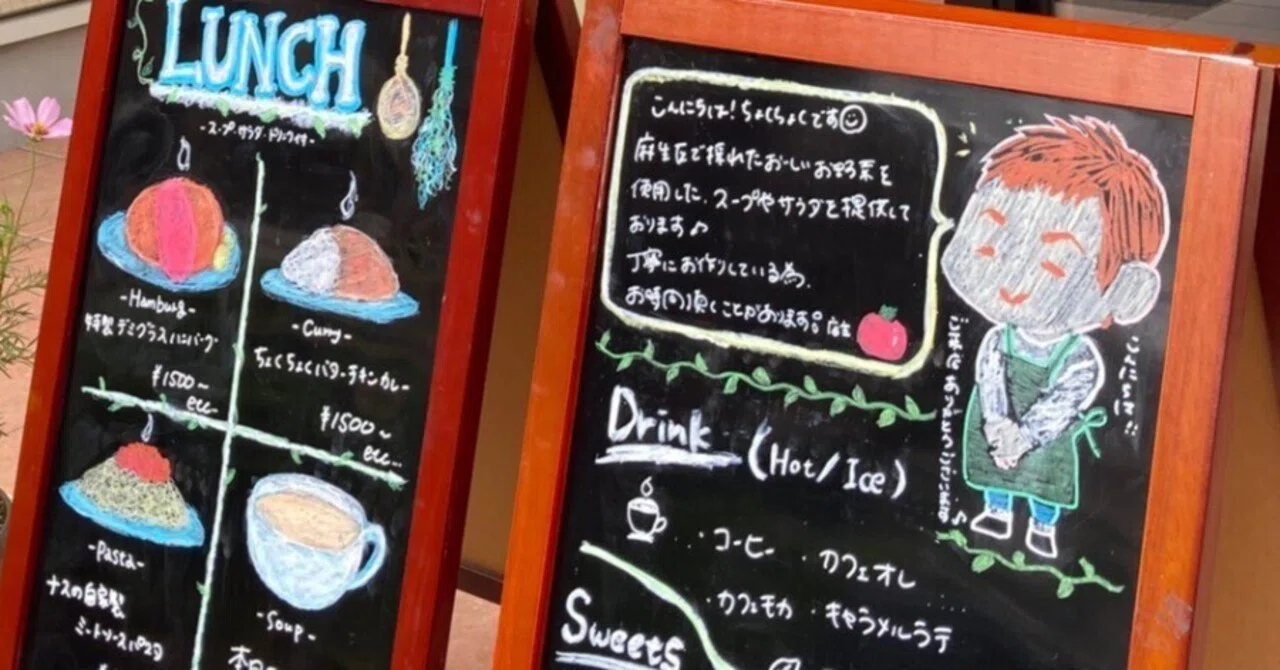 LUNCH
-スープ・サラダ・ドリンク付き-
-Hamburg-
特製デミグラスハンバーグ
¥1500~
etc...
-Curry-
ちょくちょくバターチキンカレー
¥1500~
etc...
-Pasta-
ナスの自家製
ミートソースパスタ
-Soup-
本日
こんにちは!ちょくちょくです
麻生区で採れたおいしいお野菜を
使用した、スープやサラダを提供して
おります♪
丁寧にお作りしている為、
お時間頂くことがあります。店主
Drink (Hot/Ice)
・コーヒー ・カフェオレ
・カフェモカ ・キャラメルラテ
Sweets